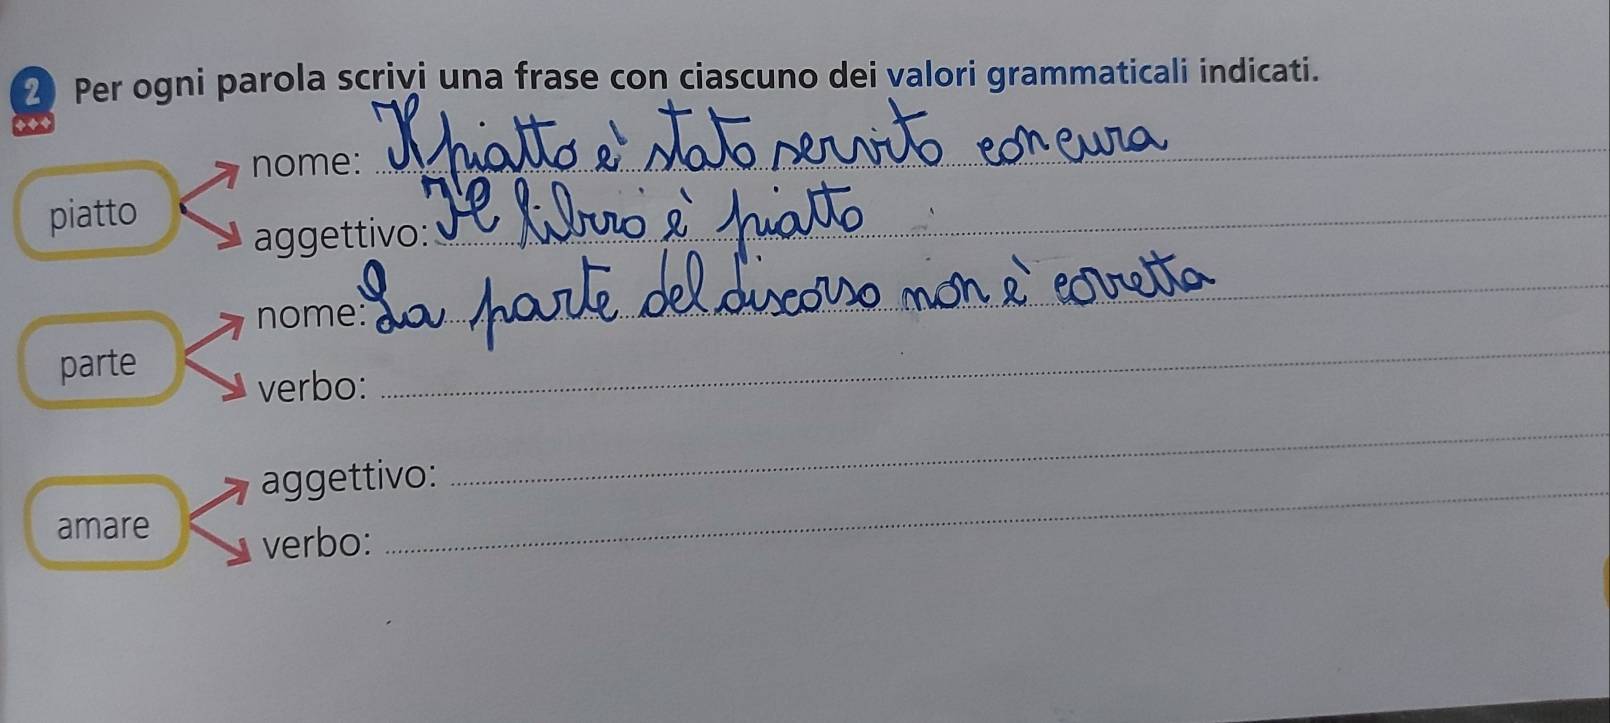 2 Per ogni parola scrivi una frase con ciascuno dei valori grammaticali indicati.
nome: Il piatto è stato servito con cura
piatto
aggettivo: Il libro è piatto
nome: La parte del discorso non è corretta
parte
verbo:
aggettivo:
amare
verbo: